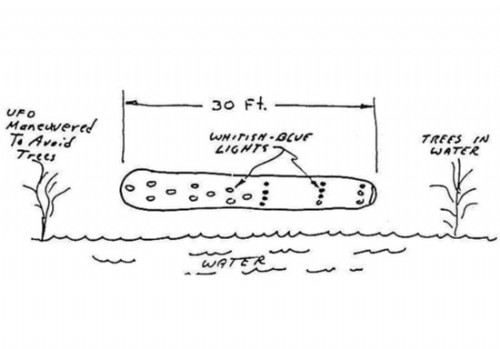 30 Ft.
UFO
Maneuvered
To Avoid
Trees
WHITISH-BLUE
LIGHTS
TREES IN
WATER
WATER